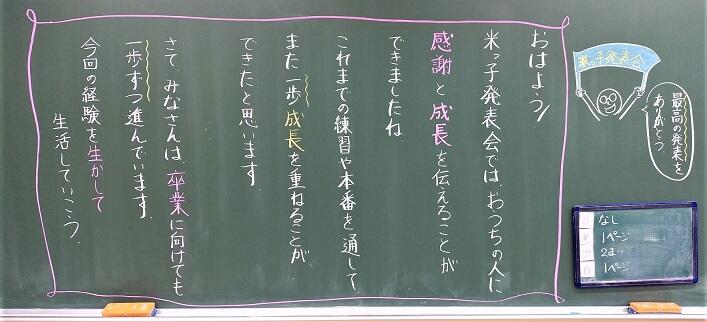 おはよう!
米っ子発表会では、おうちの人に
感謝と成長を伝えることが
できましたね。
これまでの練習や本番を通して、
また一歩成長を重ねることが
できたと思います。
さて、みなさんは、卒業に向けても
一歩ずつ進んでいます。
今回の経験を生かして
生活していこう。
米っ子発表会
最高の発表を
ありがとう。
なし
1ページ
2まい
1ページ